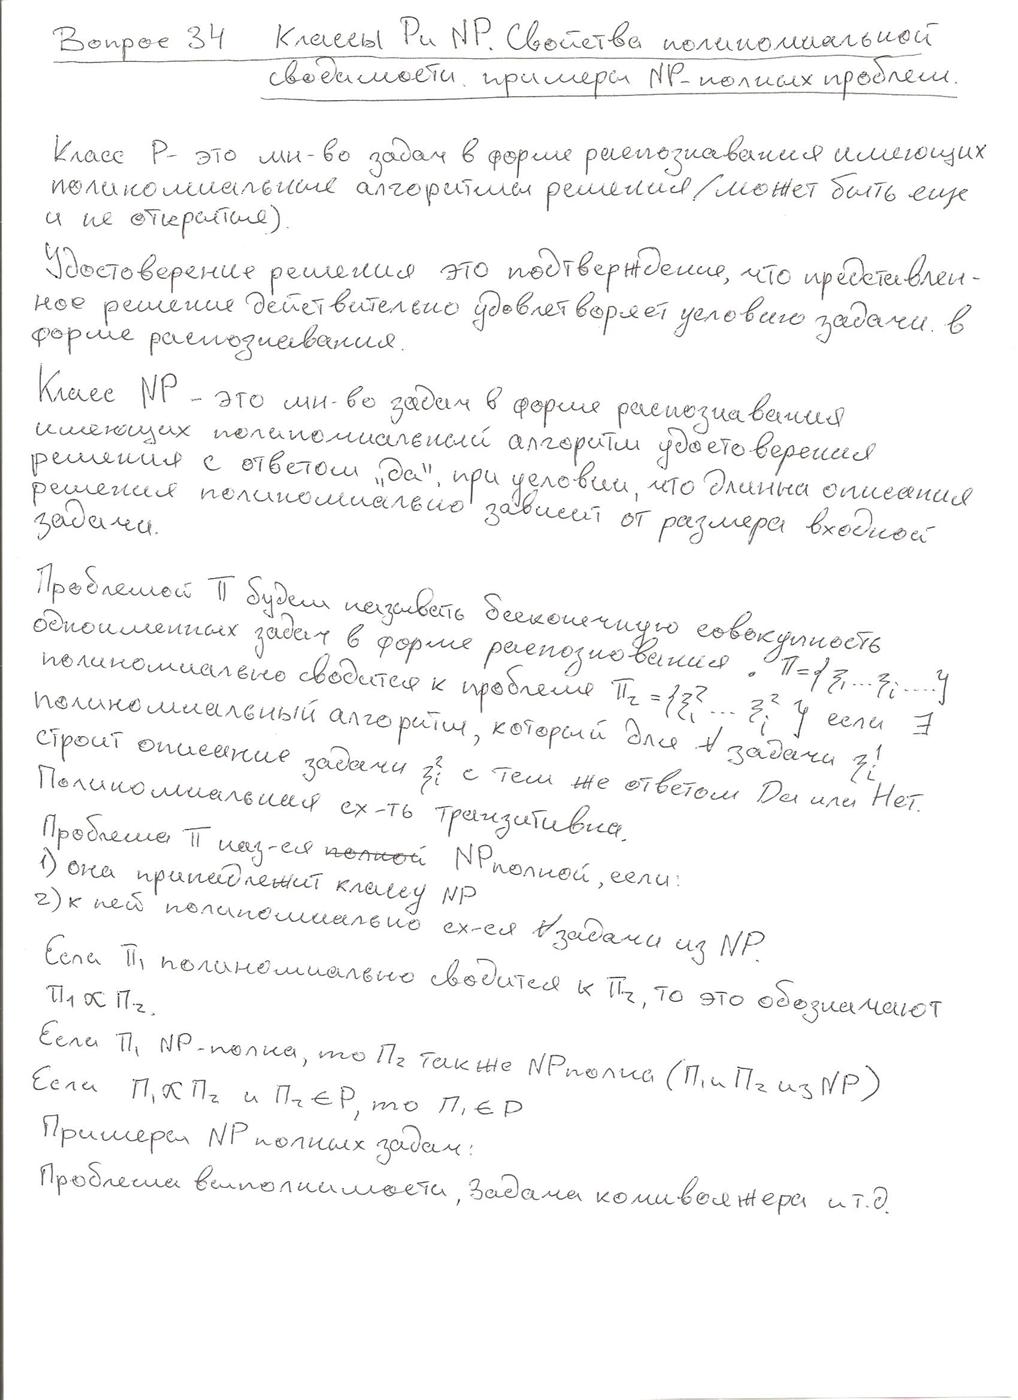 Вопрос 34 Классы P и NP. Свойства полиномиальной
сводимости. примеры NP-полных проблем.
Класс P- это мн-во задач в форме распознавания имеющих
полиномиальные алгоритмы решения (может быть еще
и не открытые).
Удостоверение решения это подтверждение, что представлен-
ное решение действительно удовлетворяет условию задачи. в
форме распознавания.
Класс NP - это мн-во задач в форме распознавания
имеющих полиномиальный алгоритм удостоверения
решения с ответом „да", при условии, что длинна описания
решения полиномиально зависит от размера входной
задачи.
Проблемой П будем называть бесконечную совокупность
одноименных задач в форме распознования. П={ξ₁...ξᵢ....}
полиномиально сводится к проблеме П₂={ξ₁²... ξᵢ²} если ∃
полиномиальный алгоритм, который для ∀ задачи ξᵢ¹
строит описание задачи ξᵢ² с тем же ответом Да или Нет.
Полиномиальная сх-ть транзитивна.
Проблема П наз-ся полной NPполной, если:
1) она принадлежит классу NP
2) к ней полиномиально сх-ся ∀ задачи из NP.
Если П₁ полиномиально сводится к П₂, то это обозначают
П₁ ∝ П₂.
Если П₁ NP-полна, то П₂ также NPполна (П₁ и П₂ из NP)
Если П₁ ∝ П₂ и П₂ ∈ P, то П₁ ∈ P
Примеры NP полных задач:
Проблема выполнимости, Задача комивояжера и т.д.